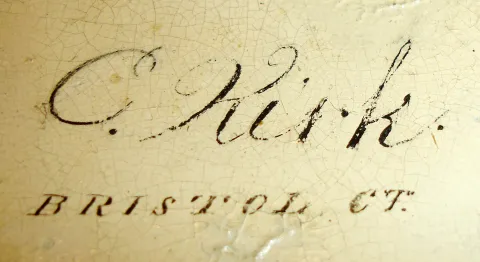 C. Kirk.
BRISTOL CT.